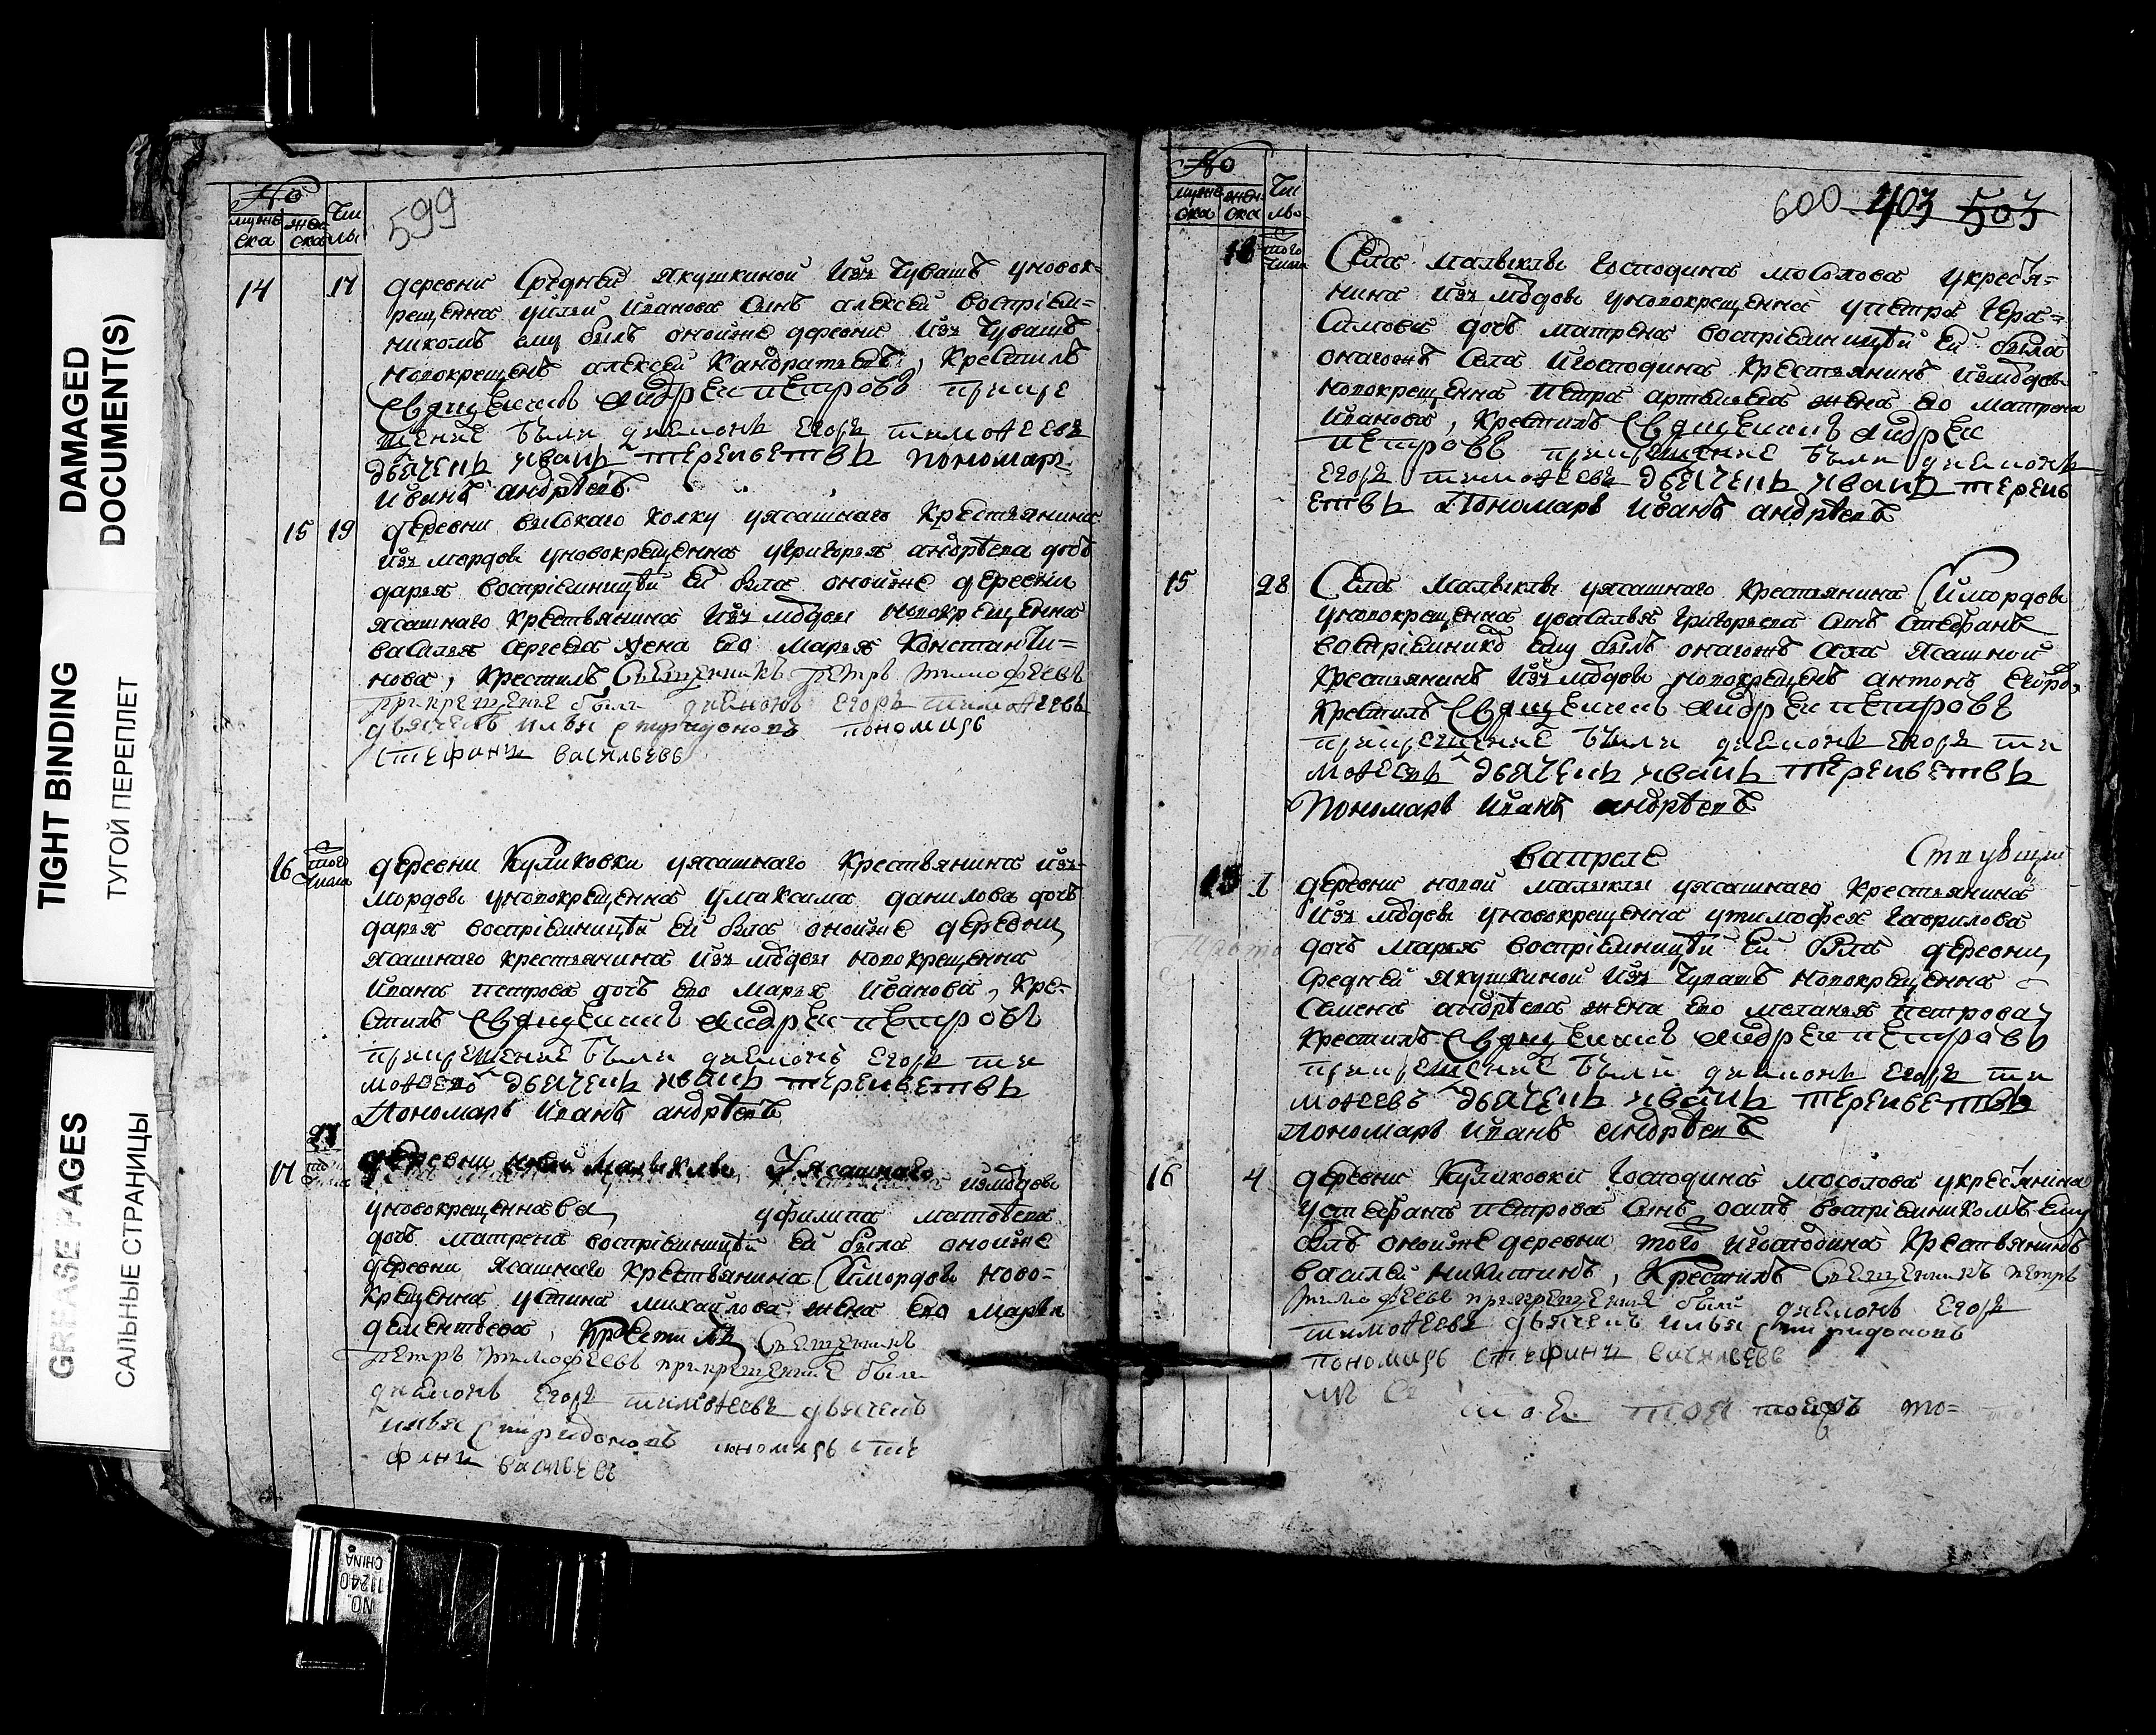 DAMAGED
DOCUMENT(S)
TIGHT BINDING
ТУГОЙ ПЕРЕПЛЕТ
GREASE PAGES
САЛЬНЫЕ СТРАНИЦЫ
NO.
11240
CHINA
№
мужеска женска числы
599
14 17 деревни Средней якушкиной изъ Чувашъ уновок-
рещенна уильи иванова сынъ алексей восприем-
никомъ ему былъ оной же деревни изъ Чувашъ
новокрещенъ алексей Кандратьевъ, Крестилъ
Священникъ андрей петровъ прикре
щение были диаконъ егоръ тимофеевъ
дьячекъ иванъ терентьевъ пономарь
иванъ андреевъ
15 19 деревни высокаго колку уясашнаго Крестьянина
изъ мордвы уновокрещенна угригорья андреева дочь
дарья восприемницею ей была оной же деревни
ясашнаго Крестьянина изъ мордвы новокрещенна
василья сергеева жена ево марья Константи-
нова, Крестилъ Священникъ петръ тимофеевъ
прикрещение были диаконъ егоръ тимофеевъ
дьячекъ илья спиридоновъ пономарь
стефанъ васильевъ
16 того числа деревни Куликовки уясашнаго Крестьянина изъ
мордвы уновокрещенна умаксима данилова дочь
дарья восприемницею ей была оной же деревни
ясашнаго крестьянина изъ мордвы новокрещенна
ивана петрова дочь ево марья иванова, Кре-
стилъ Священникъ андрей петровъ
прикрещение были диаконъ егоръ ти
мофеевъ дьячекъ иванъ терентьевъ
Пономарь иванъ андреевъ
17 деревни новой малыклы уясашнаго изъ мордвы
уновокрещеннава уфилипа матвеева
дочь матрена восприемницею ей была оной же
деревни ясашнаго Крестьянина измордвы ново-
Крещенна устина михайлова жена ево марья
дементьева, Крестилъ Священникъ
петръ тимофеевъ прикрещение были
диаконъ егоръ тимофеевъ дьячекъ
илья спиридоновъ пономарь сте
фанъ васильевъ
№
мужеска женска число
600 403 503
18 того числа Села малыклы господина мосолова укрестья-
нина изъ мордвы уновокрещенна упетра гера-
симова дочь матрена восприемницею ей была
оногожъ села и господина Крестьянинъ измордвы
новокрещенна петра артемьева жена ево матрена
иванова, Крестилъ Священникъ андрей
петровъ прикрещение были диаконъ
егоръ тимофеевъ дьячекъ иванъ терень
етвъ Пономарь иванъ андреевъ
15 28 Села малыклы уясашнаго Крестьянина измордвы
уновокрещенна увасилья григорьева сынъ стефанъ
восприемникъ ему былъ оногожъ села ясашной
Крестьянинъ изъ мордвы новокрещенъ антонъ
Крестилъ Священникъ андрей петровъ
прикрещение были диаконъ егоръ ти
мофеевъ дьячекъ иванъ терентьевъ
Пономарь иванъ андреевъ
вапреле
1 деревни новой малыклы уясашнаго Крестьянина
изъ мордвы уновокрещенна утимофея гаврилова
дочь марья восприемницею ей была деревни
средней якушкиной изъ Чувашъ новокрещенна
семена андреева жена ево меланья петрова,
Крестилъ Священникъ андрей петровъ
прикрещение были диаконъ егоръ ти
мофеевъ дьячекъ иванъ терентьевъ
Пономарь иванъ андреевъ
16 4 деревни Куликовки господина мосолова укрестьянина
устефана петрова сынъ осипъ восприемникомъ ему
былъ оной же деревни того и господина Крестьянинъ
василей никитинъ, Крестилъ Священникъ петръ
тимофеевъ прикрещение были диаконъ егоръ
тимофеевъ дьячекъ илья спиридоновъ
пономарь стефанъ васильевъ